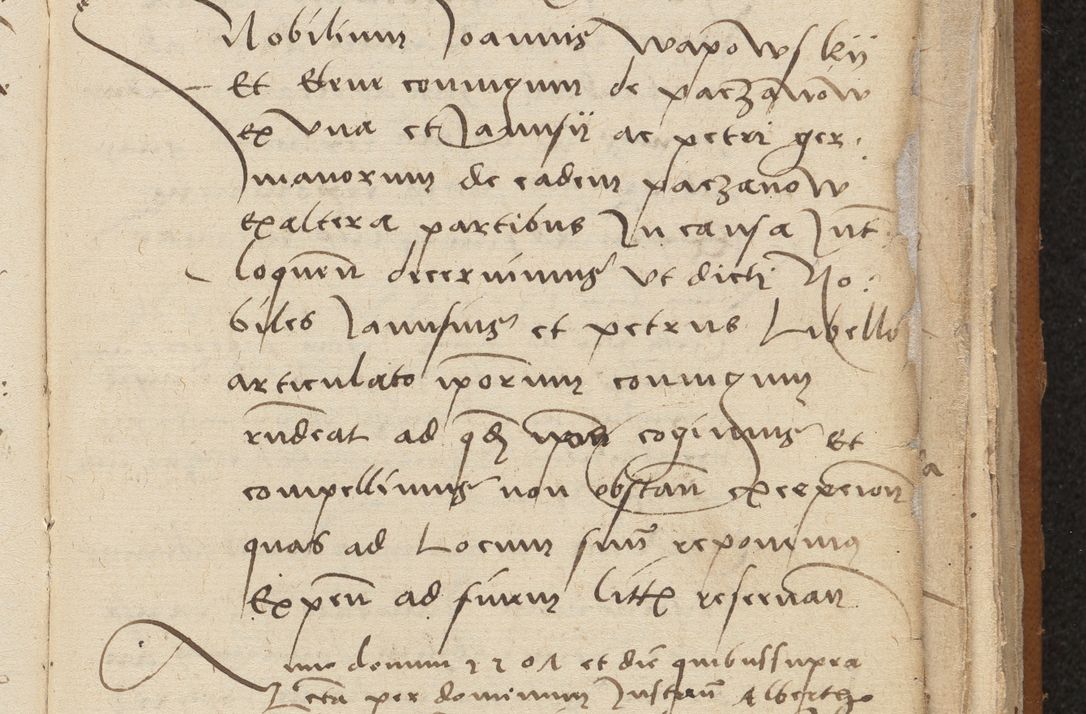 Nobilium Joannis Wapowskij
Et Ewe coniugum de paczanow
ex Una et Janusij ac petri ger
manorum de eadem paczanow
Ex altera partibus In causa Int
loquen decernimus Ut dicti No
biles Janusius et petrus Libello
articulato ipsorum coniugum
rndeat ad qd ipsos cogimus Et
compellimus non obstan excepcion
quas ad Locum suum reponimus
Expen ad finem littis reservan
Anno domini et die quibus supra
Lecta per dominum Instan Alberth